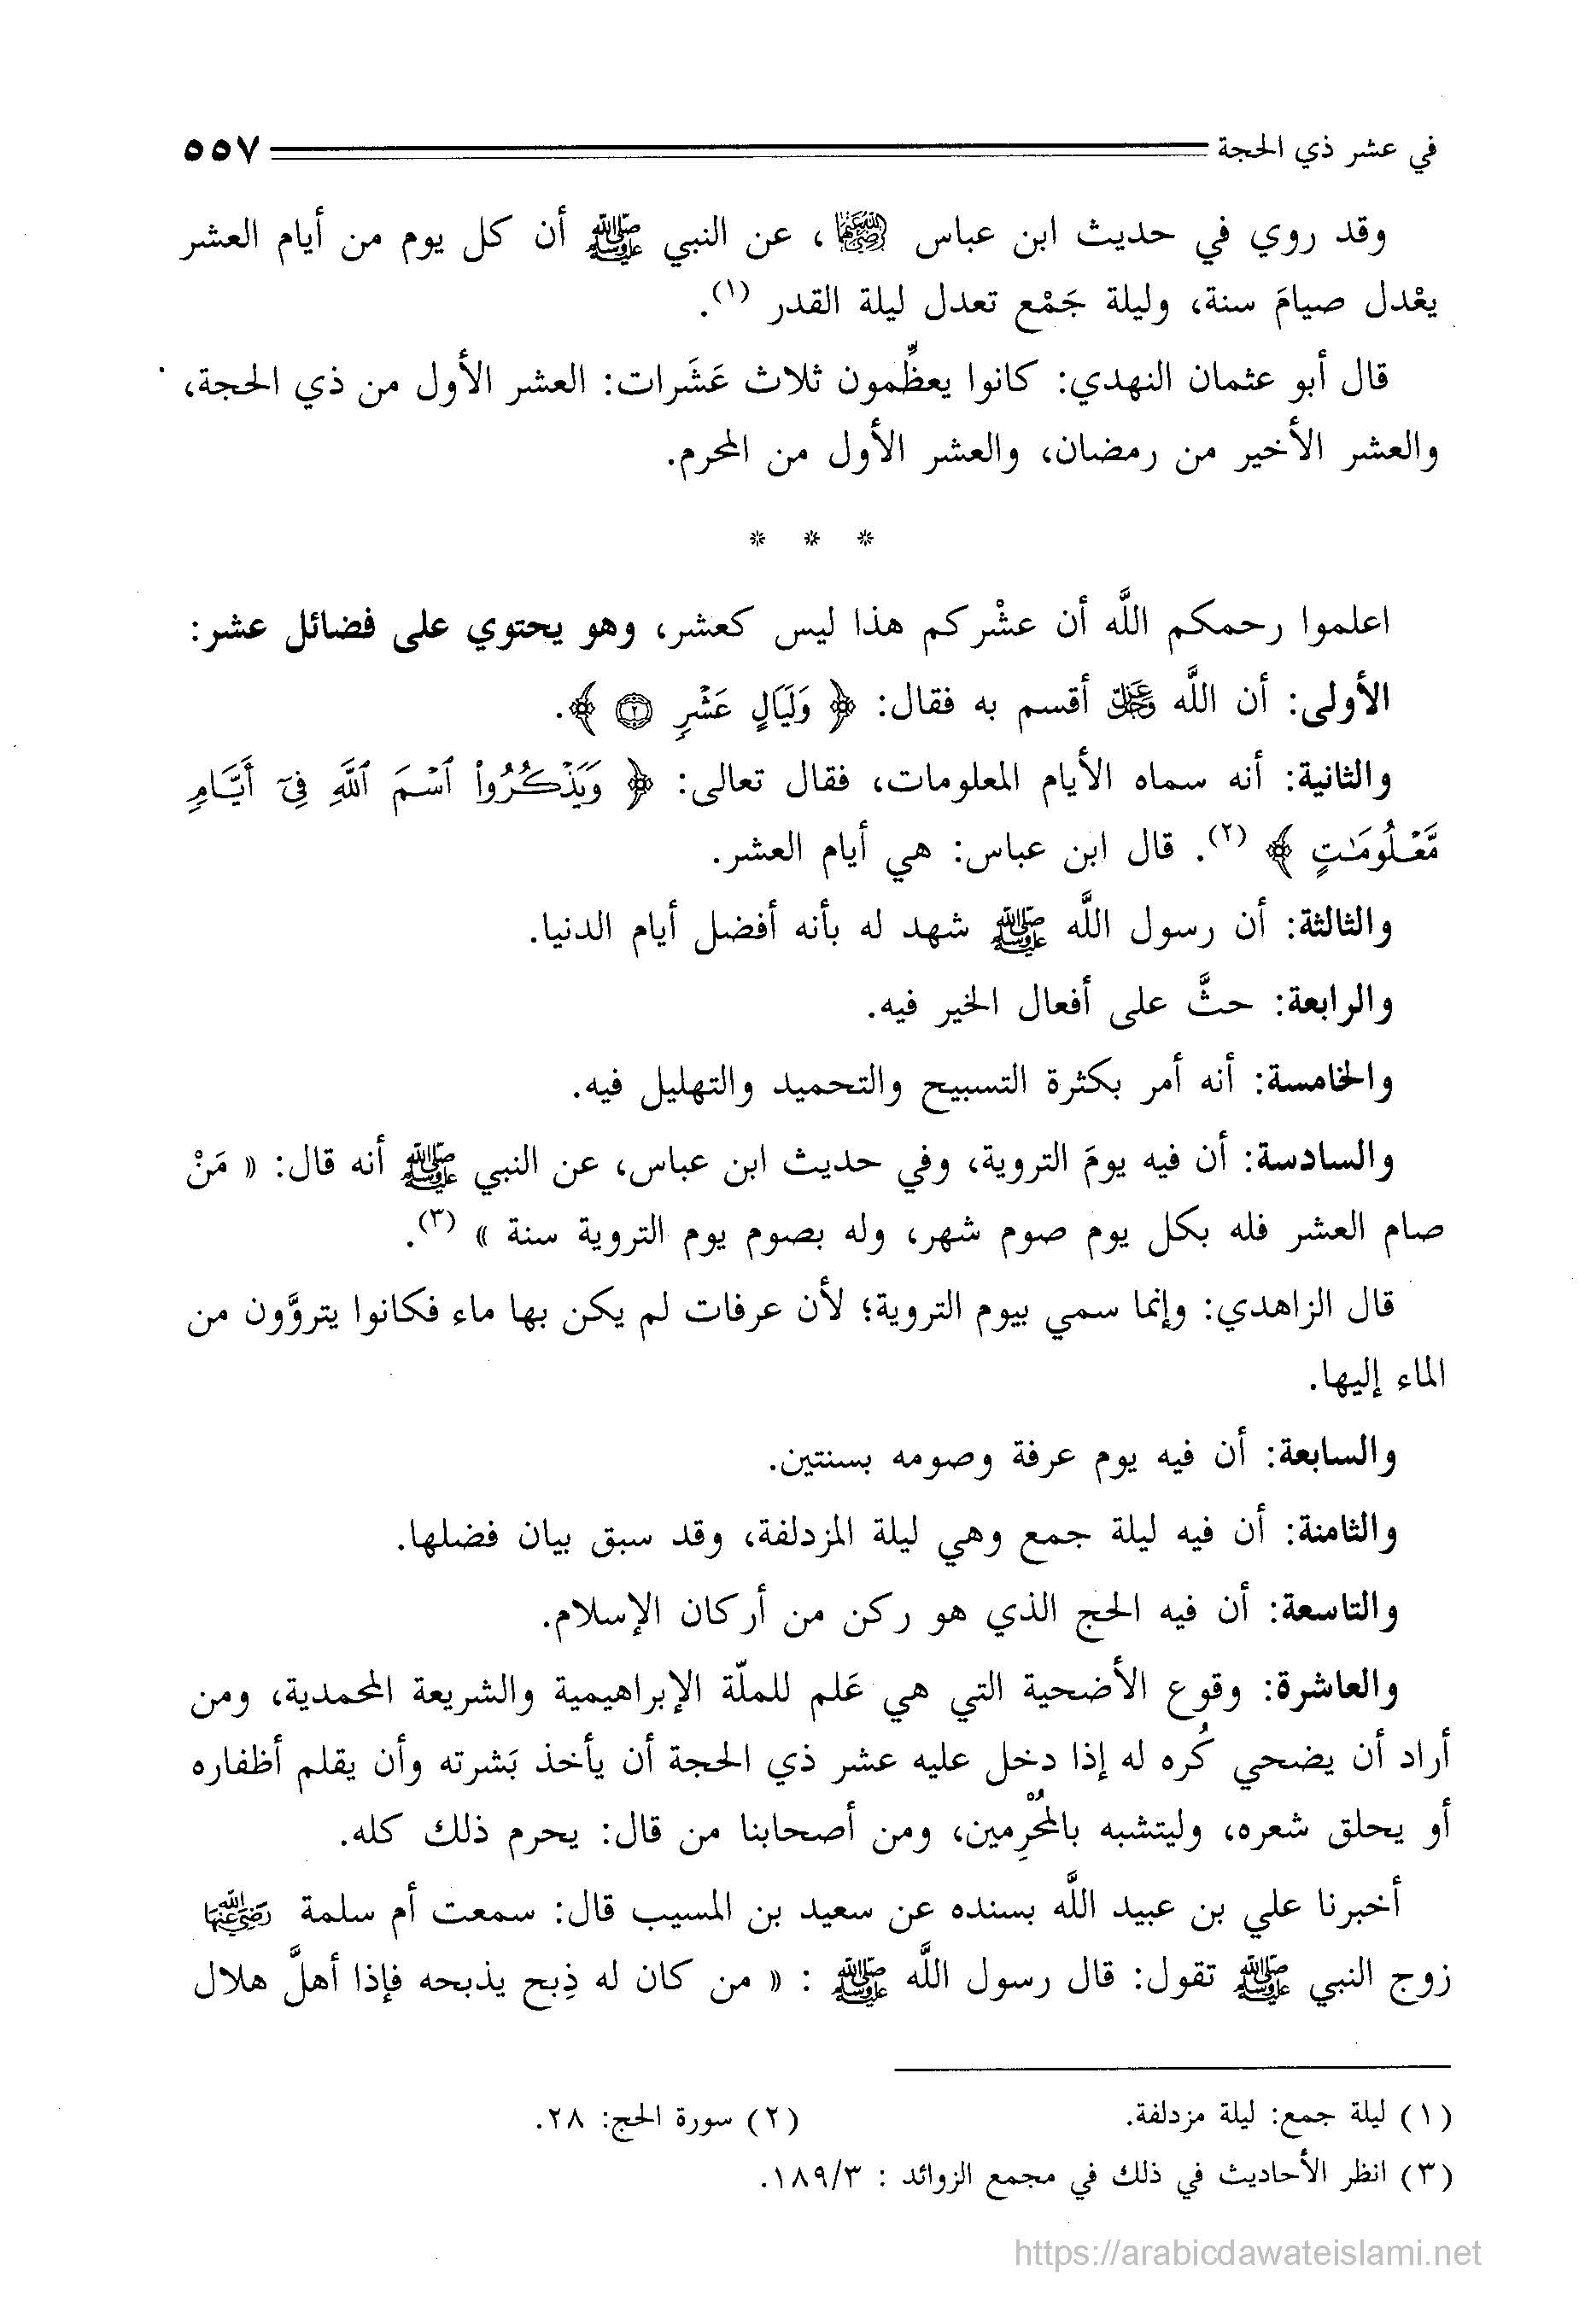 في عشر ذي الحجة ٥٥٧
وقد روي في حديث ابن عباس رضي الله عنهما، عن النبي ﷺ أن كل يوم من أيام العشر
يعْدل صيامَ سنة، وليلة جَمْع تعدل ليلة القدر (١).
قال أبو عثمان النهدي: كانوا يعظِّمون ثلاث عَشَرات: العشر الأول من ذي الحجة،
والعشر الأخير من رمضان، والعشر الأول من المحرم.
* * *
اعلموا رحمكم اللَّه أن عشْركم هذا ليس كعشر، وهو يحتوي على فضائل عشر:
الأولى: أن اللَّه عَزَّ وَجَلَّ أقسم به فقال: ﴿ وَلَيَالٍ عَشْرٍ ٢ ﴾.
والثانية: أنه سماه الأيام المعلومات، فقال تعالى: ﴿ وَيَذْكُرُوا۟ ٱسْمَ ٱللَّهِ فِىٓ أَيَّامٍ
مَّعْلُومَـٰتٍ ﴾ (٢). قال ابن عباس: هي أيام العشر.
والثالثة: أن رسول اللَّه ﷺ شهد له بأنه أفضل أيام الدنيا.
والرابعة: حثَّ على أفعال الخير فيه.
والخامسة: أنه أمر بكثرة التسبيح والتحميد والتهليل فيه.
والسادسة: أن فيه يومَ التروية، وفي حديث ابن عباس، عن النبي ﷺ أنه قال: « مَنْ
صام العشر فله بكل يوم صوم شهر، وله بصوم يوم التروية سنة » (٣).
قال الزاهدي: وإنما سمي بيوم التروية؛ لأن عرفات لم يكن بها ماء فكانوا يتروَّون من
الماء إليها.
والسابعة: أن فيه يوم عرفة وصومه بسنتين.
والثامنة: أن فيه ليلة جمع وهي ليلة المزدلفة، وقد سبق بيان فضلها.
والتاسعة: أن فيه الحج الذي هو ركن من أركان الإسلام.
والعاشرة: وقوع الأضحية التي هي عَلم للملّة الإبراهيمية والشريعة المحمدية، ومن
أراد أن يضحي كُره له إذا دخل عليه عشر ذي الحجة أن يأخذ بَشرته وأن يقلم أظفاره
أو يحلق شعره، وليتشبه بالمُحْرِمين، ومن أصحابنا من قال: يحرم ذلك كله.
أخبرنا علي بن عبيد اللَّه بسنده عن سعيد بن المسيب قال: سمعت أم سلمة رضي الله عنها
زوج النبي ﷺ تقول: قال رسول اللَّه ﷺ : « من كان له ذِبح يذبحه فإذا أهلَّ هلال
(١) ليلة جمع: ليلة مزدلفة. (٢) سورة الحج: ٢٨.
(٣) انظر الأحاديث في ذلك في مجمع الزوائد : ١٨٩/٣.
https://arabicdawateislami.net